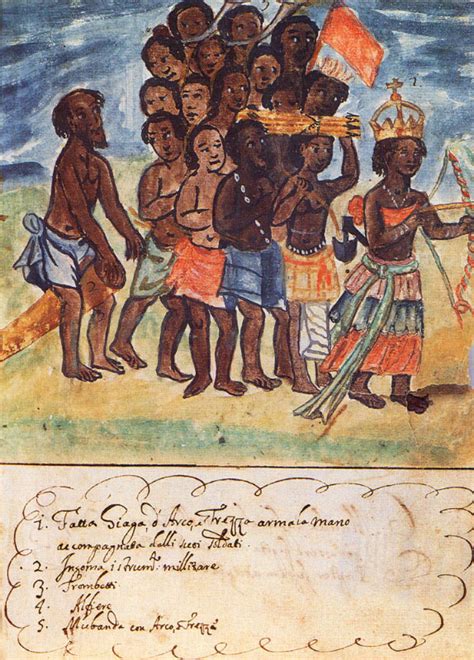 1.
1. Fatta Giaga, d'Arco, e Frezza arma la mano
accompagnata dalli suoi Soldati.
2. Ingoma istrum: militare
3 Trombetti
4 Alfiere
5. con Arco, e Frezza